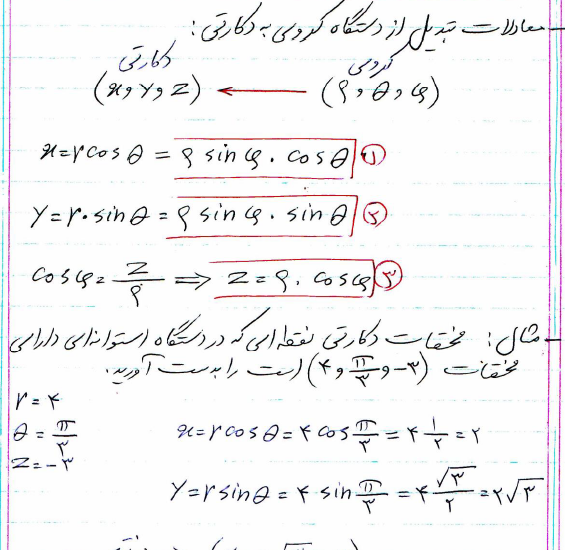 - معادلات تبدیل از دستگاه کروی به دکارتی :
دکارتی کروی
(x, y, z) ← (ρ, θ, φ)
x = r cos θ = ρ sin φ . cos θ ①
y = r . sin θ = ρ sin φ . sin θ ②
cos φ = z/ρ ⇒ z = ρ . cos φ ③
- مثال : مختصات دکارتی نقطه ای که در دستگاه استوانه ای دارای
مختصات (۴ و π/۳ و -۳) است را بدست آورید.
r = ۴
θ = π/۳
x = r cos θ = ۴ cos π/۳ = ۴ ۱/۲ = ۲
z = -۳
y = r sin θ = ۴ sin π/۳ = ۴ √۳/۲ = ۲√۳